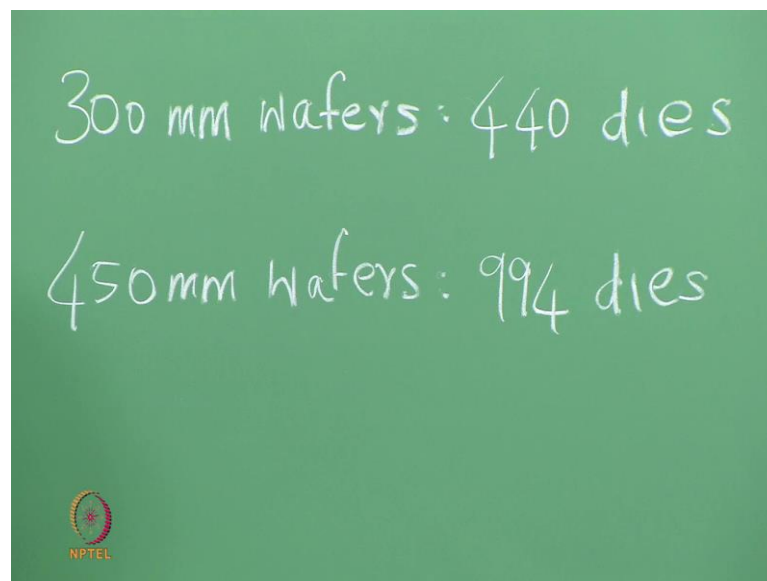 300 mm wafers: 440 dies
450mm wafers: 994 dies
NPTEL